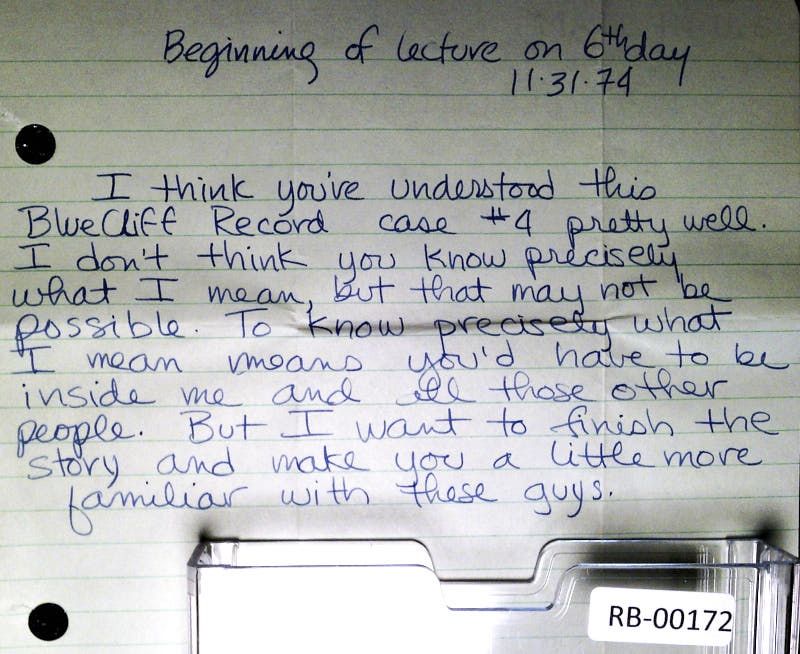 Beginning of lecture on 6th day
11.31.74
I think you've understood this
Blue Cliff Record case #4 pretty well.
I don't think you know precisely
what I mean, but that may not be
possible. To know precisely what
I mean means you'd have to be
inside me and all those other
people. But I want to finish the
story and make you a little more
familiar with these guys.
RB-00172